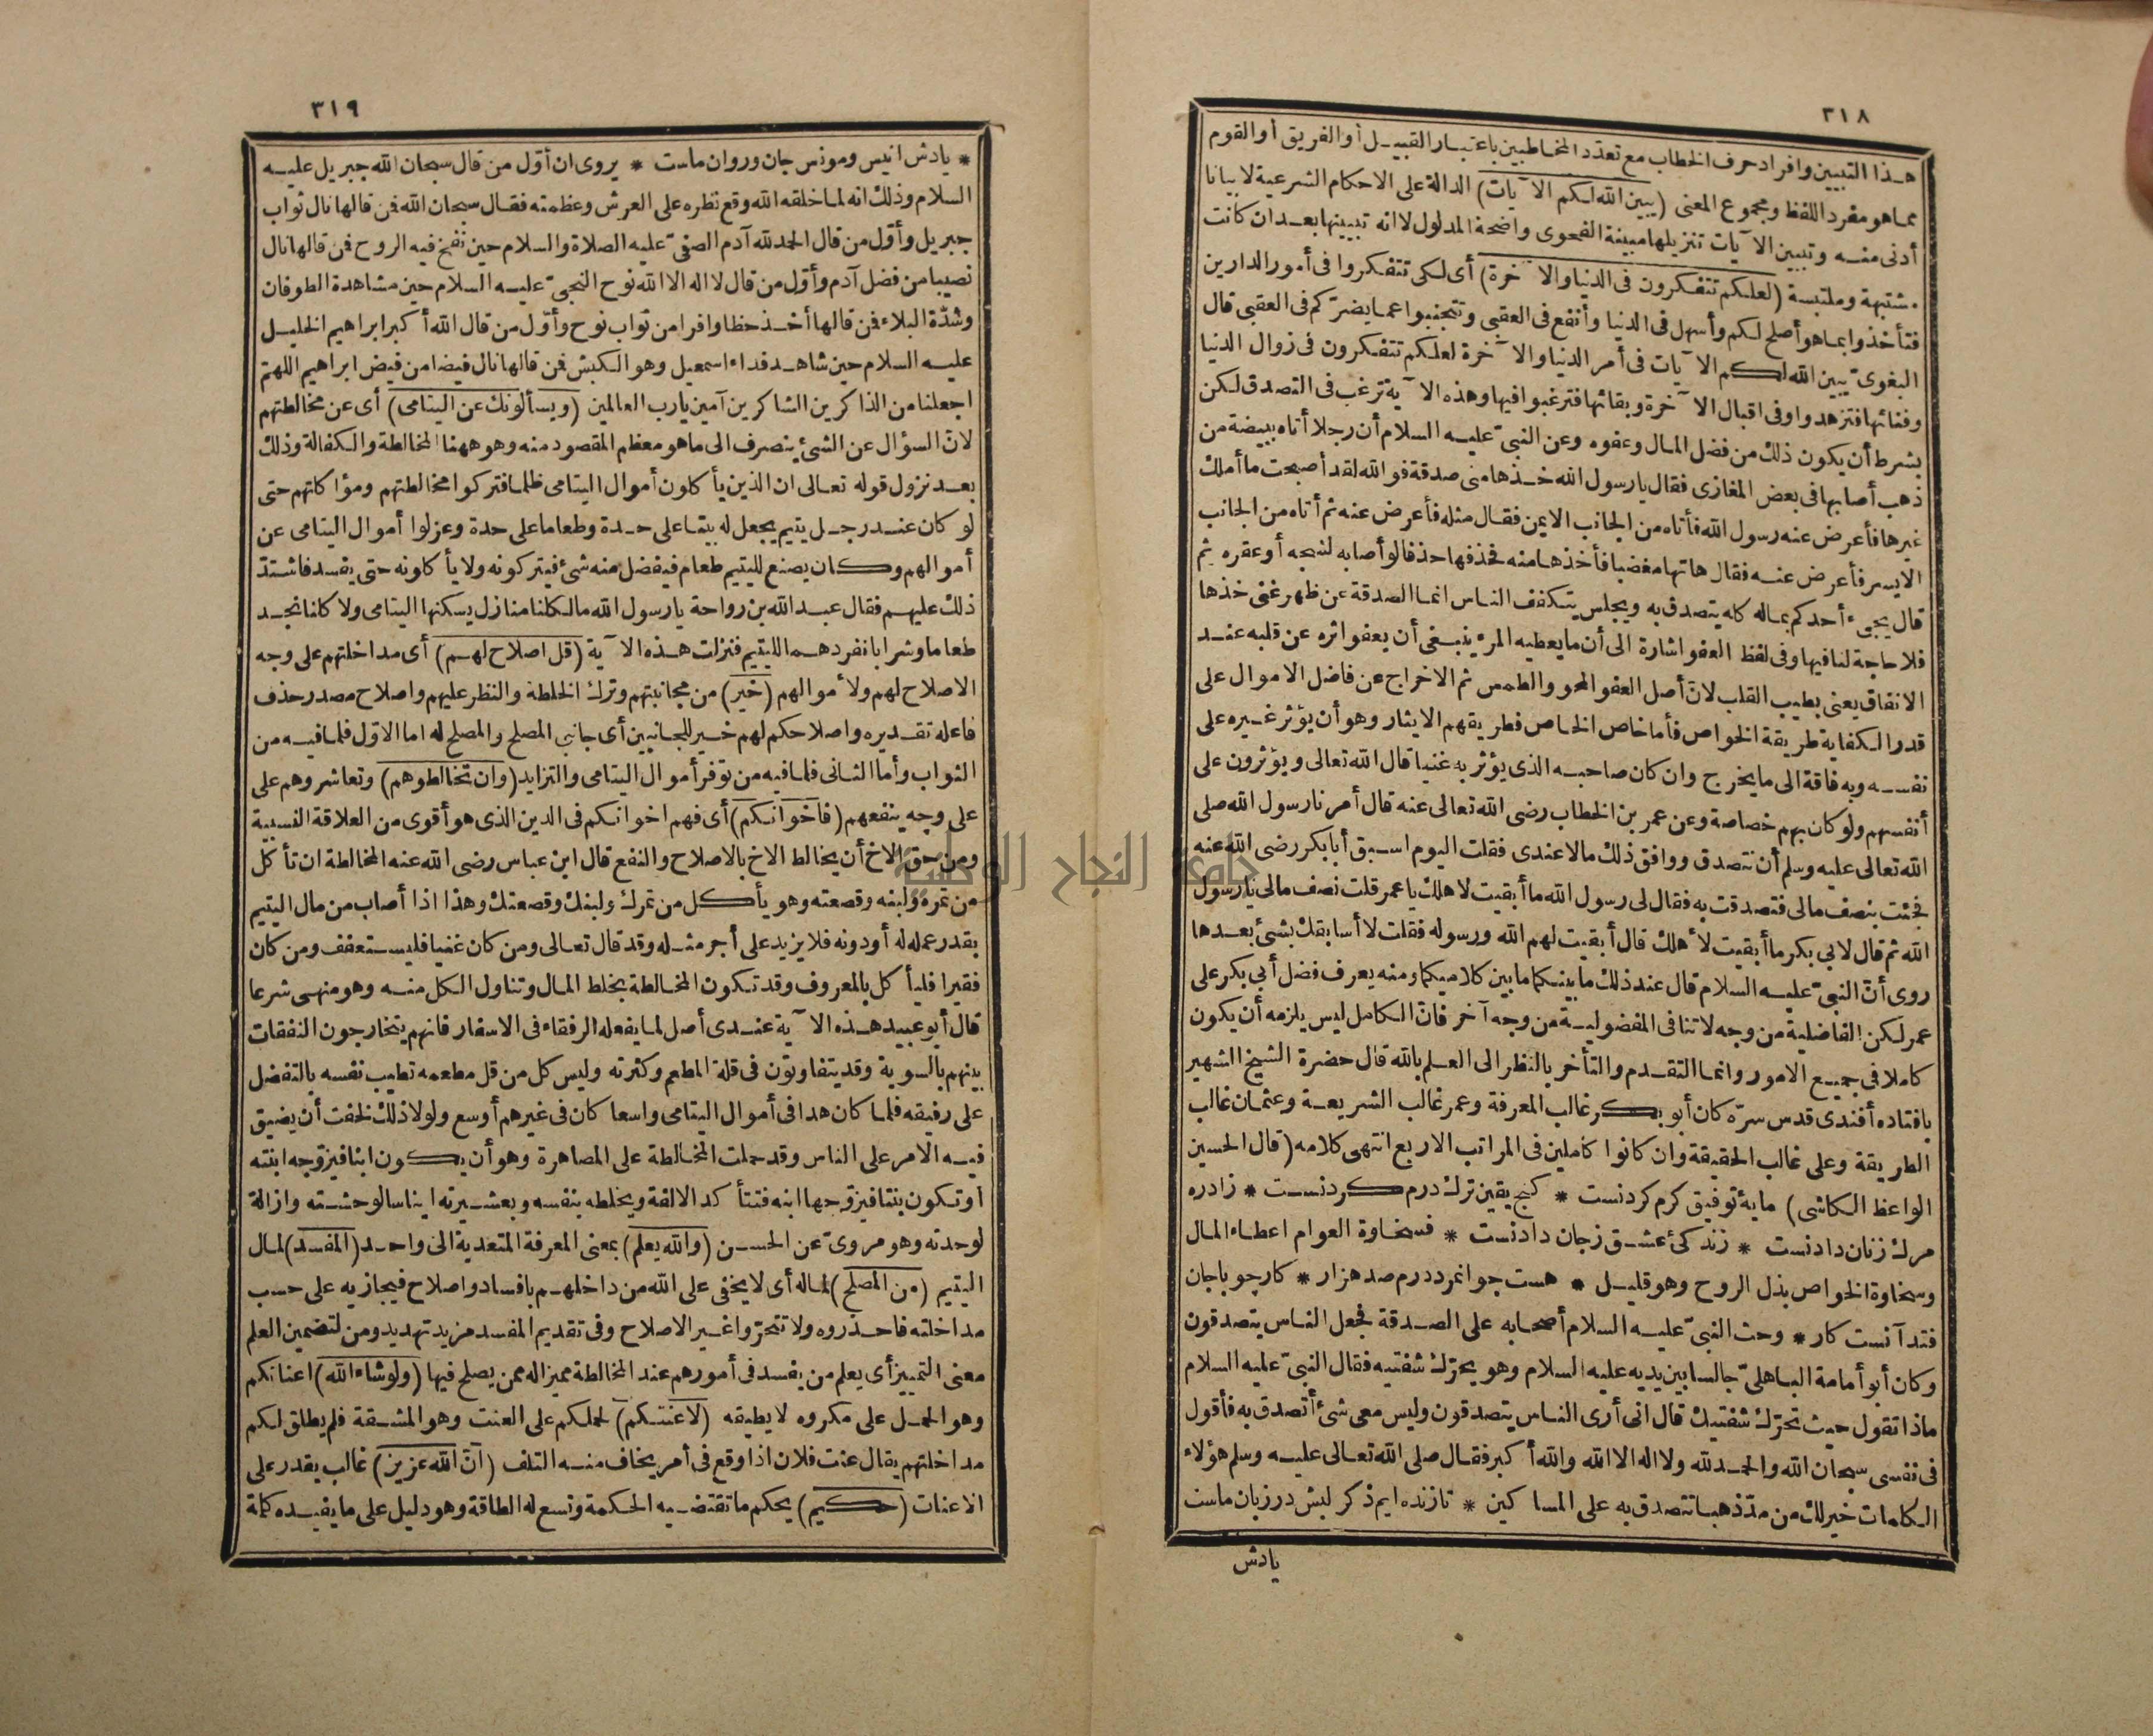 ٣١٨
هذا التبيين وافراد حرف الخطاب مع تعدّد المخاطبين باعتبار القبيل أو الفريق أو القوم
مما هو مفرد اللفظ ومجموع المعنى (يبين الله لكم الآيات) الدالة على الاحكام الشرعية لا بيانا
أدنى منه وتبيين الآيات تنزيلها مبينة الفحوى واضحة المدلول لا انه تبيينها بعد ان كانت
مشتبهة وملتبسة (لعلكم تتفكرون فى الدنيا والآخرة) أى لكى تتفكروا فى أمور الدارين
فتأخذوا بما هو أصلح لكم وأسهل فى الدنيا وأنفع فى العقبى وتتجنبوا عما يضرّكم فى العقبى قال
البغوىّ يبين الله لكم الآيات فى أمر الدنيا والآخرة لعلكم تتفكرون فى زوال الدنيا
وفنائها فتزهدوا وفى اقبال الآخرة وبقائها فترغبوا فيها وهذه الآية ترغب فى التصدق لكن
بشرط أن يكون ذلك من فضل المال وعفوه وعن النبىّ عليه السلام أن رجلا أتاه ببيضة من
ذهب أصابها فى بعض المغازى فقال يا رسول الله خذها منى صدقة فو الله لقد أصبحت ما أملك
غيرها فأعرض عنه رسول الله فأتاه من الجانب الايمن فقال مثله فأعرض عنه ثم أتاه من الجانب
الايسر فأعرض عنه فقال هاتها مغضبا فأخذها منه فحذفها حذفا لو أصابه لشجه أو عقره ثم
قال يجىء أحدكم بماله كله يتصدق به ويجلس يتكفف الناس انما الصدقة عن ظهر غنى خذها
فلا حاجة لنا فيها وفى لفظ العفو اشارة الى أن ما يعطيه المرء ينبغى أن يعفو اثره عن قلبه عند
الانفاق يعنى بطيب القلب لانّ أصل العفو المحو والطمس ثم الاخراج عن فاضل الاموال على
قدر الكفاية طريقة الخواص فأما خاص الخاص فطريقهم الايثار وهو أن يؤثر غيره على
نفسه وبه فاقة الى ما يخرج وان كان صاحبه الذى يؤثر به غنيا قال الله تعالى ويؤثرون على
أنفسهم ولو كان بهم خصاصة وعن عمر بن الخطاب رضى الله تعالى عنه قال أمرنا رسول الله صلى
الله تعالى عليه وسلم أن نتصدق ووافق ذلك مالا عندى فقلت اليوم اسبق أبا بكر رضى الله عنه
فجئت بنصف مالى فتصدقت به فقال لى رسول الله ما أبقيت لاهلك يا عمر قلت نصف مالى يا رسول
الله ثم قال لابي بكر ما أبقيت لأهلك قال أبقيت لهم الله ورسوله فقلت لا أسابقك بشئ بعدها
روى أنّ النبىّ عليه السلام قال عند ذلك ما بينكما ما بين كلاميكما ومنه يعرف فضل أبي بكر على
عمر لكن الفاضلية من وجه لا تنافى المفضولية من وجه آخر فانّ الكامل ليس يلزمه أن يكون
كاملا فى جميع الامور وانما التقدم والتأخر بالنظر الى العلم بالله قال حضرة الشيخ الشهير
بافتاده أفندى قدس سرّه كان أبو بكر غالب المعرفة وعمر غالب الشريعة وعثمان غالب
الطريقة وعلى غالب الحقيقة وان كانوا كاملين فى المراتب الاربع انتهى كلامه (قال الحسين
الواعظ الكاشى) مايهٔ توفيق كرم كردنست * كنج يقين ترك درم كردنست * زادره
مرك زنان دادنست * زندكئ عشق زجان دادنست * فسخاوة العوام اعطاء المال
وسخاوة الخواص بذل الروح وهو قليل * هست جوانمرد درم صد هزار * كار چو با جان
فتد آنست كار * وحث النبىّ عليه السلام أصحابه على الصدقة فجعل الناس يتصدقون
وكان أبو أمامة الباهلىّ جالسا بين يديه عليه السلام وهو يحرّك شفتيه فقال النبىّ عليه السلام
ماذا تقول حيث تحرّك شفتيك قال انى أرى الناس يتصدقون وليس معى شئ أتصدق به فأقول
فى نفسى سبحان الله والحمد لله ولا اله الا الله والله أكبر فقال صلى الله تعالى عليه وسلم هؤلاء
الكلمات خير لك من مدّ ذهبا تتصدق به على المساكين * تا زنده ايم ذكر لبش در زبان ماست
يادش
٣١٩
* يادش انيس ومونس جان وروان ماست * يروى ان أوّل من قال سبحان الله جبريل عليه
السلام وذلك انه لما خلقه الله وقع نظره على العرش وعظمته فقال سبحان الله فمن قالها نال ثواب
جبريل وأوّل من قال الحمد لله آدم الصفىّ عليه الصلاة والسلام حين نفخ فيه الروح فمن قالها نال
نصيبا من فضل آدم وأوّل من قال لا اله الا الله نوح النجىّ عليه السلام حين مشاهدة الطوفان
وشدّة البلاء فمن قالها أخذ حظا وافرا من ثواب نوح وأوّل من قال الله أكبر ابراهيم الخليل
عليه السلام حين شاهد فداء اسمعيل وهو الكبش فمن قالها نال فيضا من فيض ابراهيم اللهمّ
اجعلنا من الذاكرين الشاكرين آمين يا رب العالمين (ويسألونك عن اليتامى) أى عن مخالطتهم
لانّ السؤال عن الشئ ينصرف الى ما هو معظم المقصود منه وهو ههنا المخالطة والكفالة وذلك
بعد نزول قوله تعالى ان الذين يأكلون أموال اليتامى ظلما فتركوا مخالطتهم ومؤاكلتهم حتى
لو كان عند رجل يتيم يجعل له بيتا على حدة وطعاما على حدة وعزلوا أموال اليتامى عن
أموالهم وكان يصنع لليتيم طعام فيفضل منه شئ فيتركونه ولا يأكلونه حتى يفسد فاشتدّ
ذلك عليهم فقال عبد الله بن رواحة يا رسول الله ما لكلنا منازل يسكنها اليتامى ولا كلنا نجد
طعاما وشرابا نفردهما لليتيم فنزلت هذه الآية (قل اصلاح لهم) أى مداخلتهم على وجه
الاصلاح لهم ولأموالهم (خير) من مجانبتهم وترك الخلطة والنظر عليهم واصلاح مصدر حذف
فاعله تقديره واصلاحكم لهم خير للجانبين أى جانبي المصلح والمصلح له اما الاوّل فلما فيه من
الثواب وأما الثانى فلما فيه من توفر أموال اليتامى والتزايد (وان تخالطوهم) وتعاشروهم على
على وجه ينفعهم (فاخوانكم) أى فهم اخوانكم فى الدين الذى هو أقوى من العلاقة النسبية
ومن حق الاخ أن يخالط الاخ بالاصلاح والنفع قال ابن عباس رضى الله عنه المخالطة ان تأكل
من تمره ولبنه وقصعته وهو يأكل من تمرك ولبنك وقصعتك وهذا اذا أصاب من مال اليتيم
بقدر عمله له أو دونه فلا يزيد على أجر مثله وقد قال تعالى ومن كان غنيا فليستعفف ومن كان
فقيرا فليأكل بالمعروف وقد تكون المخالطة بخلط المال وتناول الكل منه وهو منهى شرعا
قال أبو عبيد هذه الآية عندى أصل لما يفعله الرفقاء فى الاسفار فانهم يتخارجون النفقات
بينهم بالسوية وقد يتفاوتون فى قلة المطعم وكثرته وليس كل من قل مطعمه تطيب نفسه بالتفضل
على رفيقه فلما كان هذا فى أموال اليتامى واسعا كان فى غيرهم أوسع ولولا ذلك لخفت أن يضيق
فيه الامر على الناس وقد حملت المخالطة على المصاهرة وهو أن يكون ابنا فيزوّجه ابنته
أو تكون بنتا فيزوّجها ابنه فتتأكد الالفة ويخلطه بنفسه وبعشيرته ايناسا لوحشته وازالة
لوحدته وهو مروىّ عن الحسن (والله يعلم) بمعنى المعرفة المتعدية الى واحد (المفسد) لمال
اليتيم (من المصلح) لماله أى لا يخفى على الله من داخلهم بافساد واصلاح فيجازيه على حسب
مداخلته فاحذروه ولا تتحرّوا غير الاصلاح وفى تقديم المفسد مزيد تهديد ومن لتضمين العلم
معنى التمييز أى يعلم من يفسد فى أمورهم عند المخالطة مميزا له ممن يصلح فيها (ولو شاء الله) اعناتكم
وهو الحمل على مكروه لا يطيقه (لاعنتكم) لحملكم على العنت وهو المشقة فلم يطلق لكم
مداخلتهم يقال عنت فلان اذا وقع فى أمر يخاف منه التلف (انّ الله عزيز) غالب يقدر على
الاعنات (حكيم) يحكم ما تقتضيه الحكمة وتسع له الطاقة وهو دليل على ما يفيده كلمة